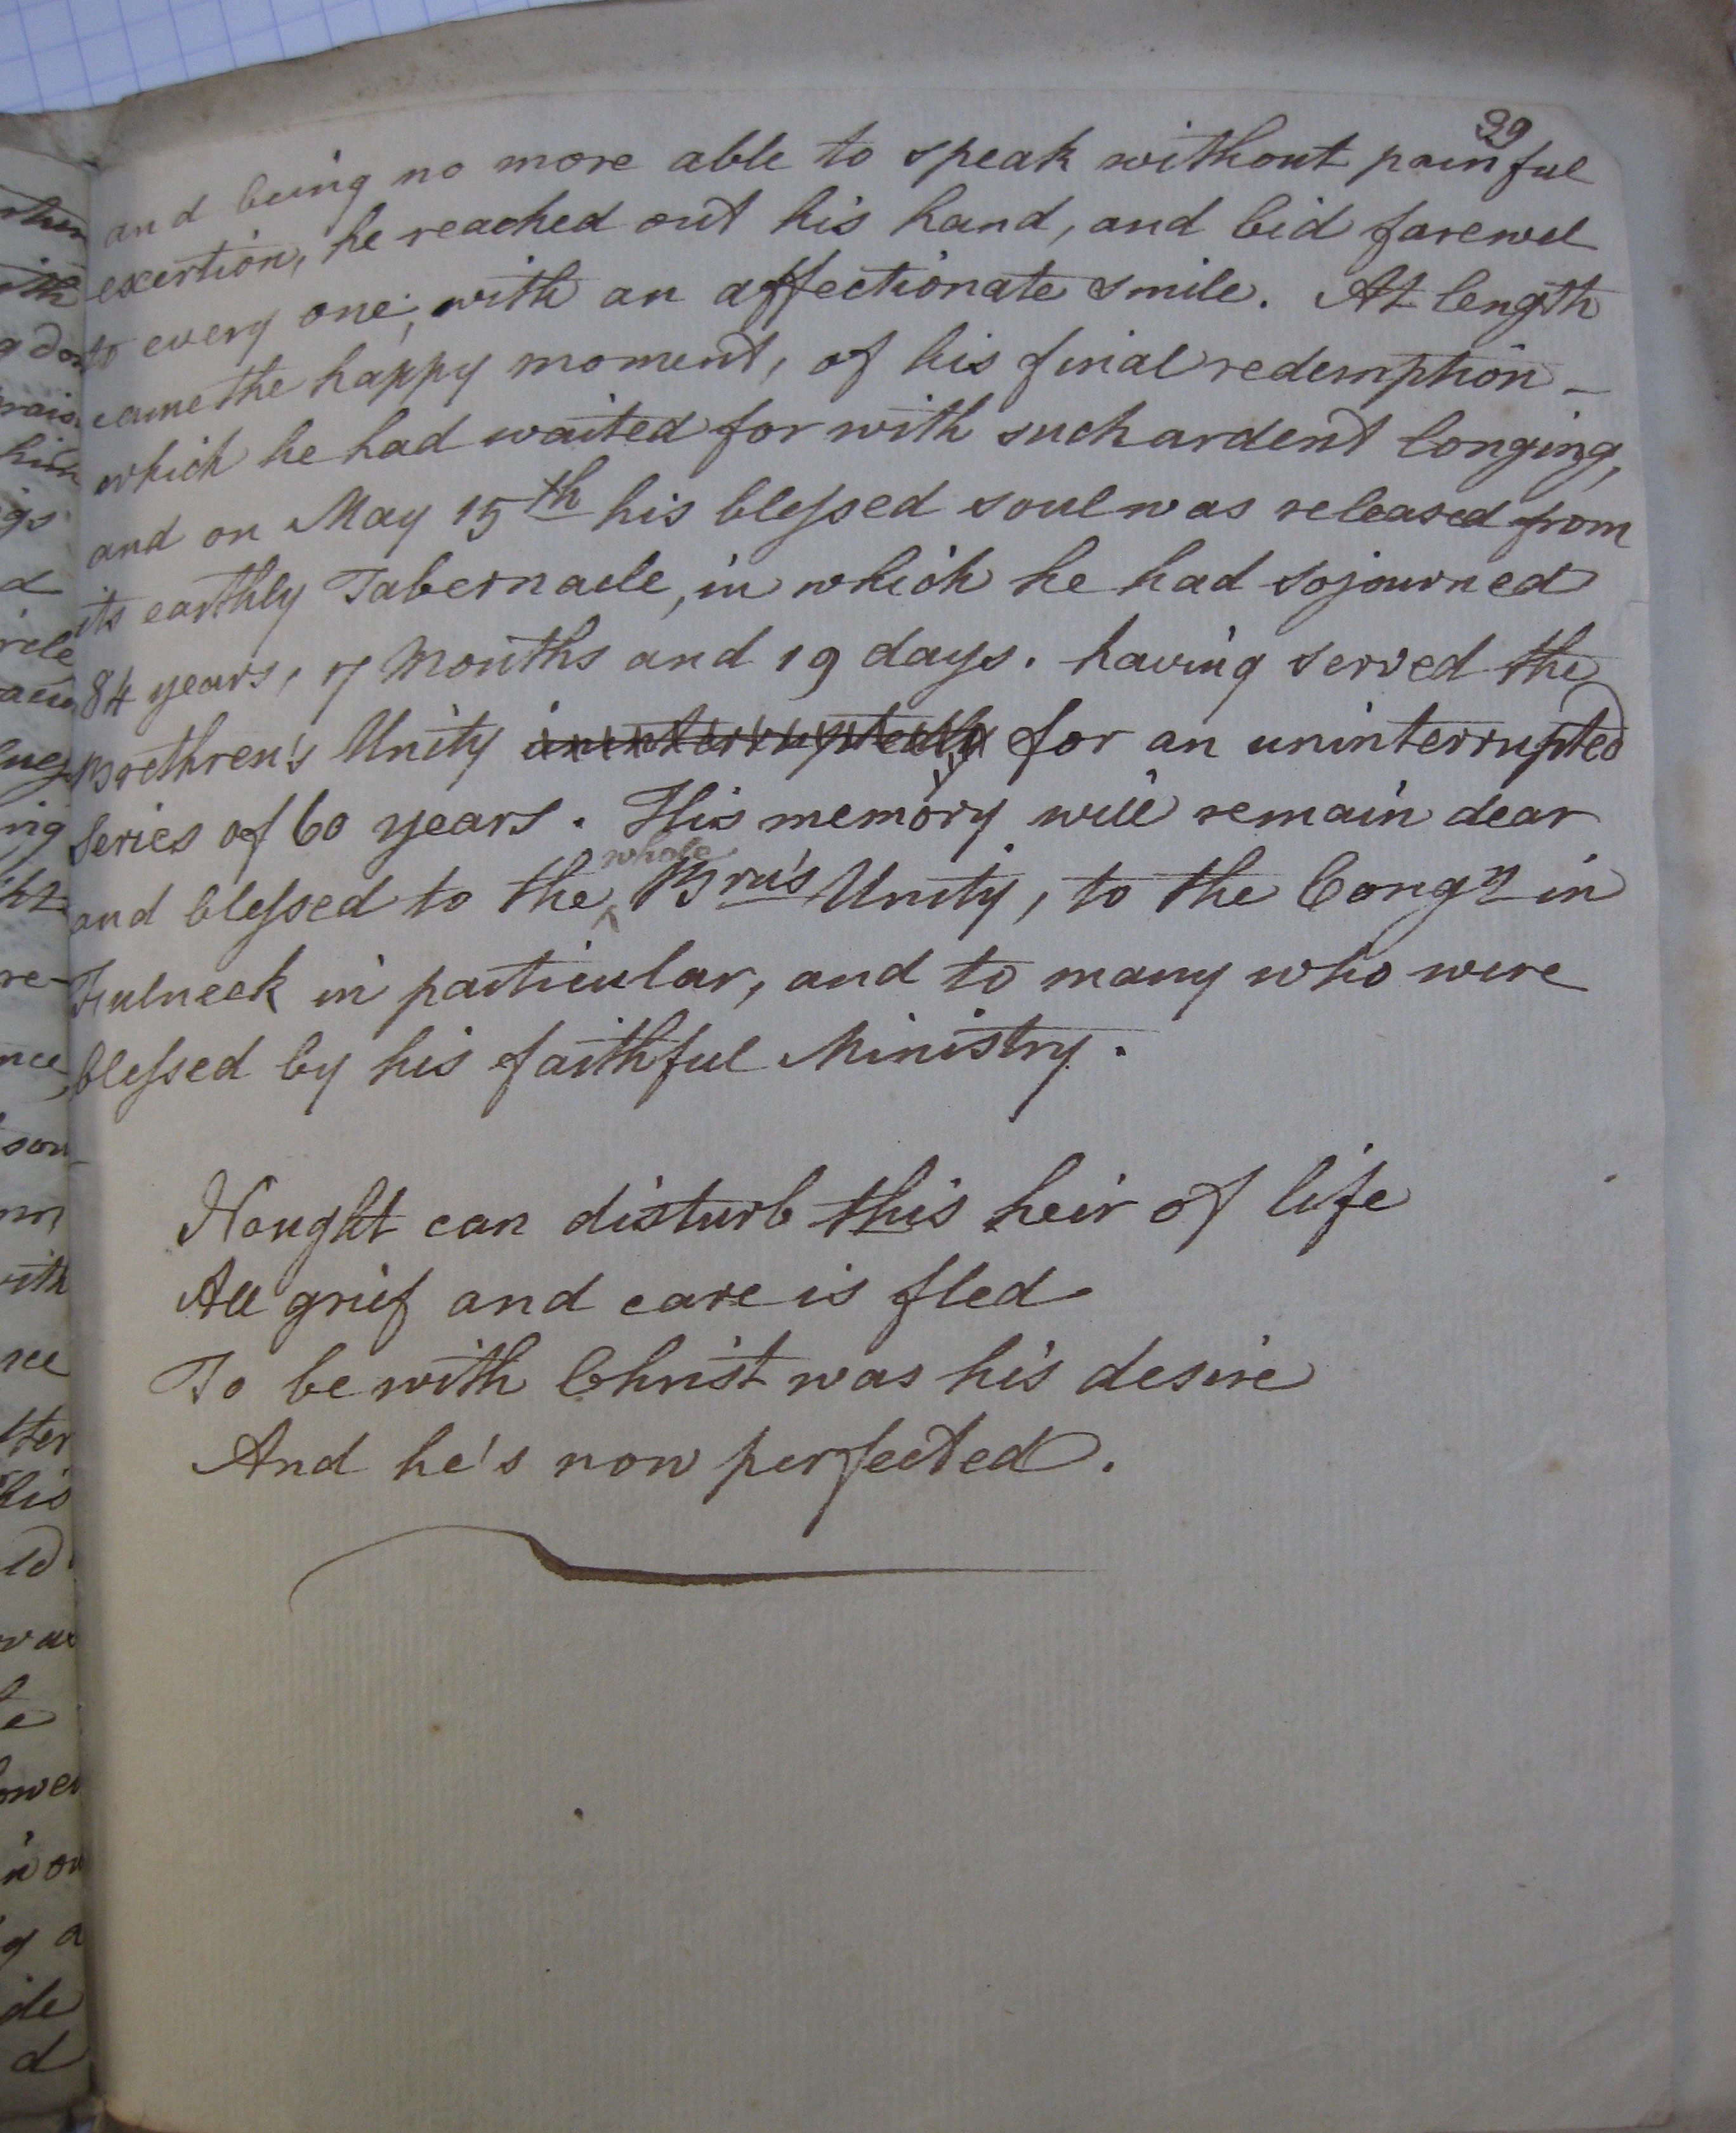 39
and being no more able to speak without painful
exertion, he reached out his hand, and bid farewel
to every one, with an affectionate smile. At length
came the happy moment, of his final redemption –
which he had waited for with such ardent longing,
and on May 15th his blessed soul was released from
its earthly Tabernacle, in which he had sojourned
84 years, 7 Months and 19 days. having served the
Brethren's Unity uninterruptedly for an uninterrupted
Series of 60 years. His memory will remain dear
whole
and blessed to the Brn's Unity, to the Congn in
Fulneck in particular, and to many who were
blessed by his faithful Ministry.
Nought can disturb this heir of life
All grief and care is fled
To be with Christ was his desire
And he's now perfected.